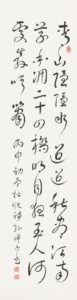 青山隱隱水迢迢秋盡江南
草未凋二十四橋明月夜玉人何
處教吹簫
丙申初冬杜牧詩